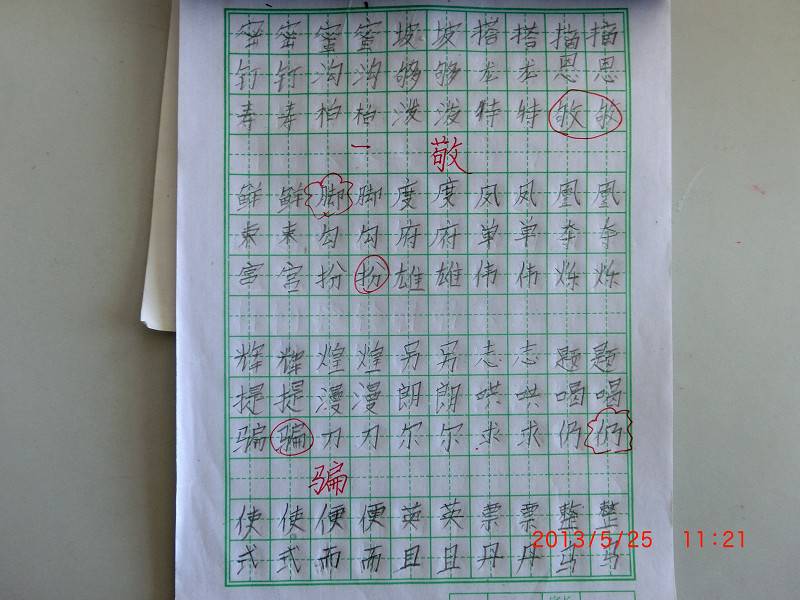 密 密 蜜 蜜 坡 坡 搭 搭 摘 摘
钉 钉 沟 沟 够 够 龙 龙 恩 恩
寿 寿 柏 柏 泼 泼 特 特 敬 敬
一 敬
鲜 鲜 脚 脚 度 度 凤 凤 凰 凰
束 束 勾 勾 府 府 单 单 夺 夺
宫 宫 扮 扮 雄 雄 伟 伟 烁 烁
辉 辉 煌 煌 另 另 志 志 题 题
提 提 漫 漫 朗 朗 哄 哄 喝 喝
骗 骗 刀 刀 尔 尔 求 求 仍 仍
骗
使 使 便 便 英 英 票 票 整 整
式 式 而 而 且 且 丹 丹 乌 乌
2013/5/25 11:21